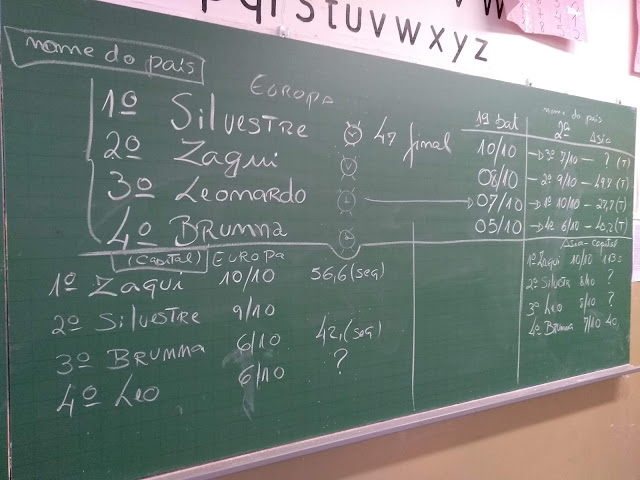 pqrstuvwxyz
nome do país
EUROPA
1º Silvestre 47 final
2º Zaqui
3º Leonardo
4º Brunna
1ª bat
10/10
08/10
07/10
05/10
nome do país
2ª Ásia
3º 7/10 — ? (T)
2º 9/10 — 49,7 (T)
1º 10/10 — 27,7 (T)
4º 6/10 — 40,2 (T)
(Capital) EUROPA
1º Zaqui 10/10 56,6 (seg)
2º Silvestre 9/10
3º Brunna 6/10 42,1 (seg)
4º Leo 6/10 ?
Ásia - capital
1º Zaqui 10/10
2º Silvestre 8/10 ?
3º Leo ?
4º Brunna 7/10 40